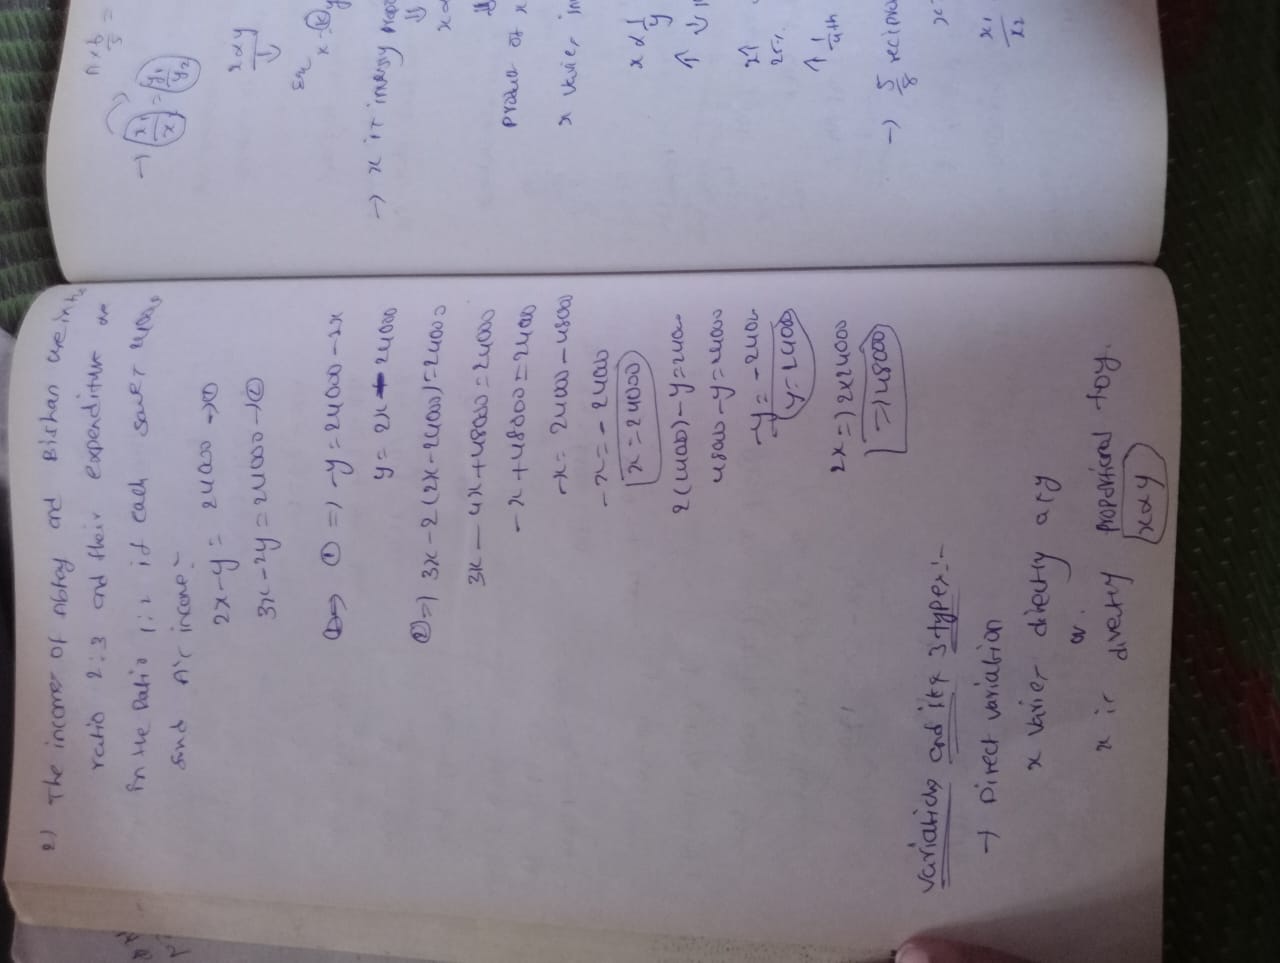 2) The incomes of Abhay and Bishan are in the
ratio 2:3 and their expenditure are
in the Ratio 1:2 if each saves 24000
find A's income:-
2x-y = 24000 → ①
3x-2y = 24000 → ②
① => -y = 24000 - 2x
y = 2x - 24000
② => 3x - 2(2x - 24000) = 24000
3x - 4x + 48000 = 24000
-x + 48000 = 24000
-x = 24000 - 48000
-x = - 24000
x = 24000
2(24000) - y = 24000
48000 - y = 24000
-y = - 24000
y = 24000
2x => 2x24000
=> 48000
Variations and its 3 types:-
→ Direct variation
x varies directly as y
or
x is directly proportional to y.
x α y
→ x1/x2 = y1/y2
x α y
→ x is
product of x
x varies
x α 1/y
↑ ↓
25%
↑ 1/4th
→ 5/8
x1/x2